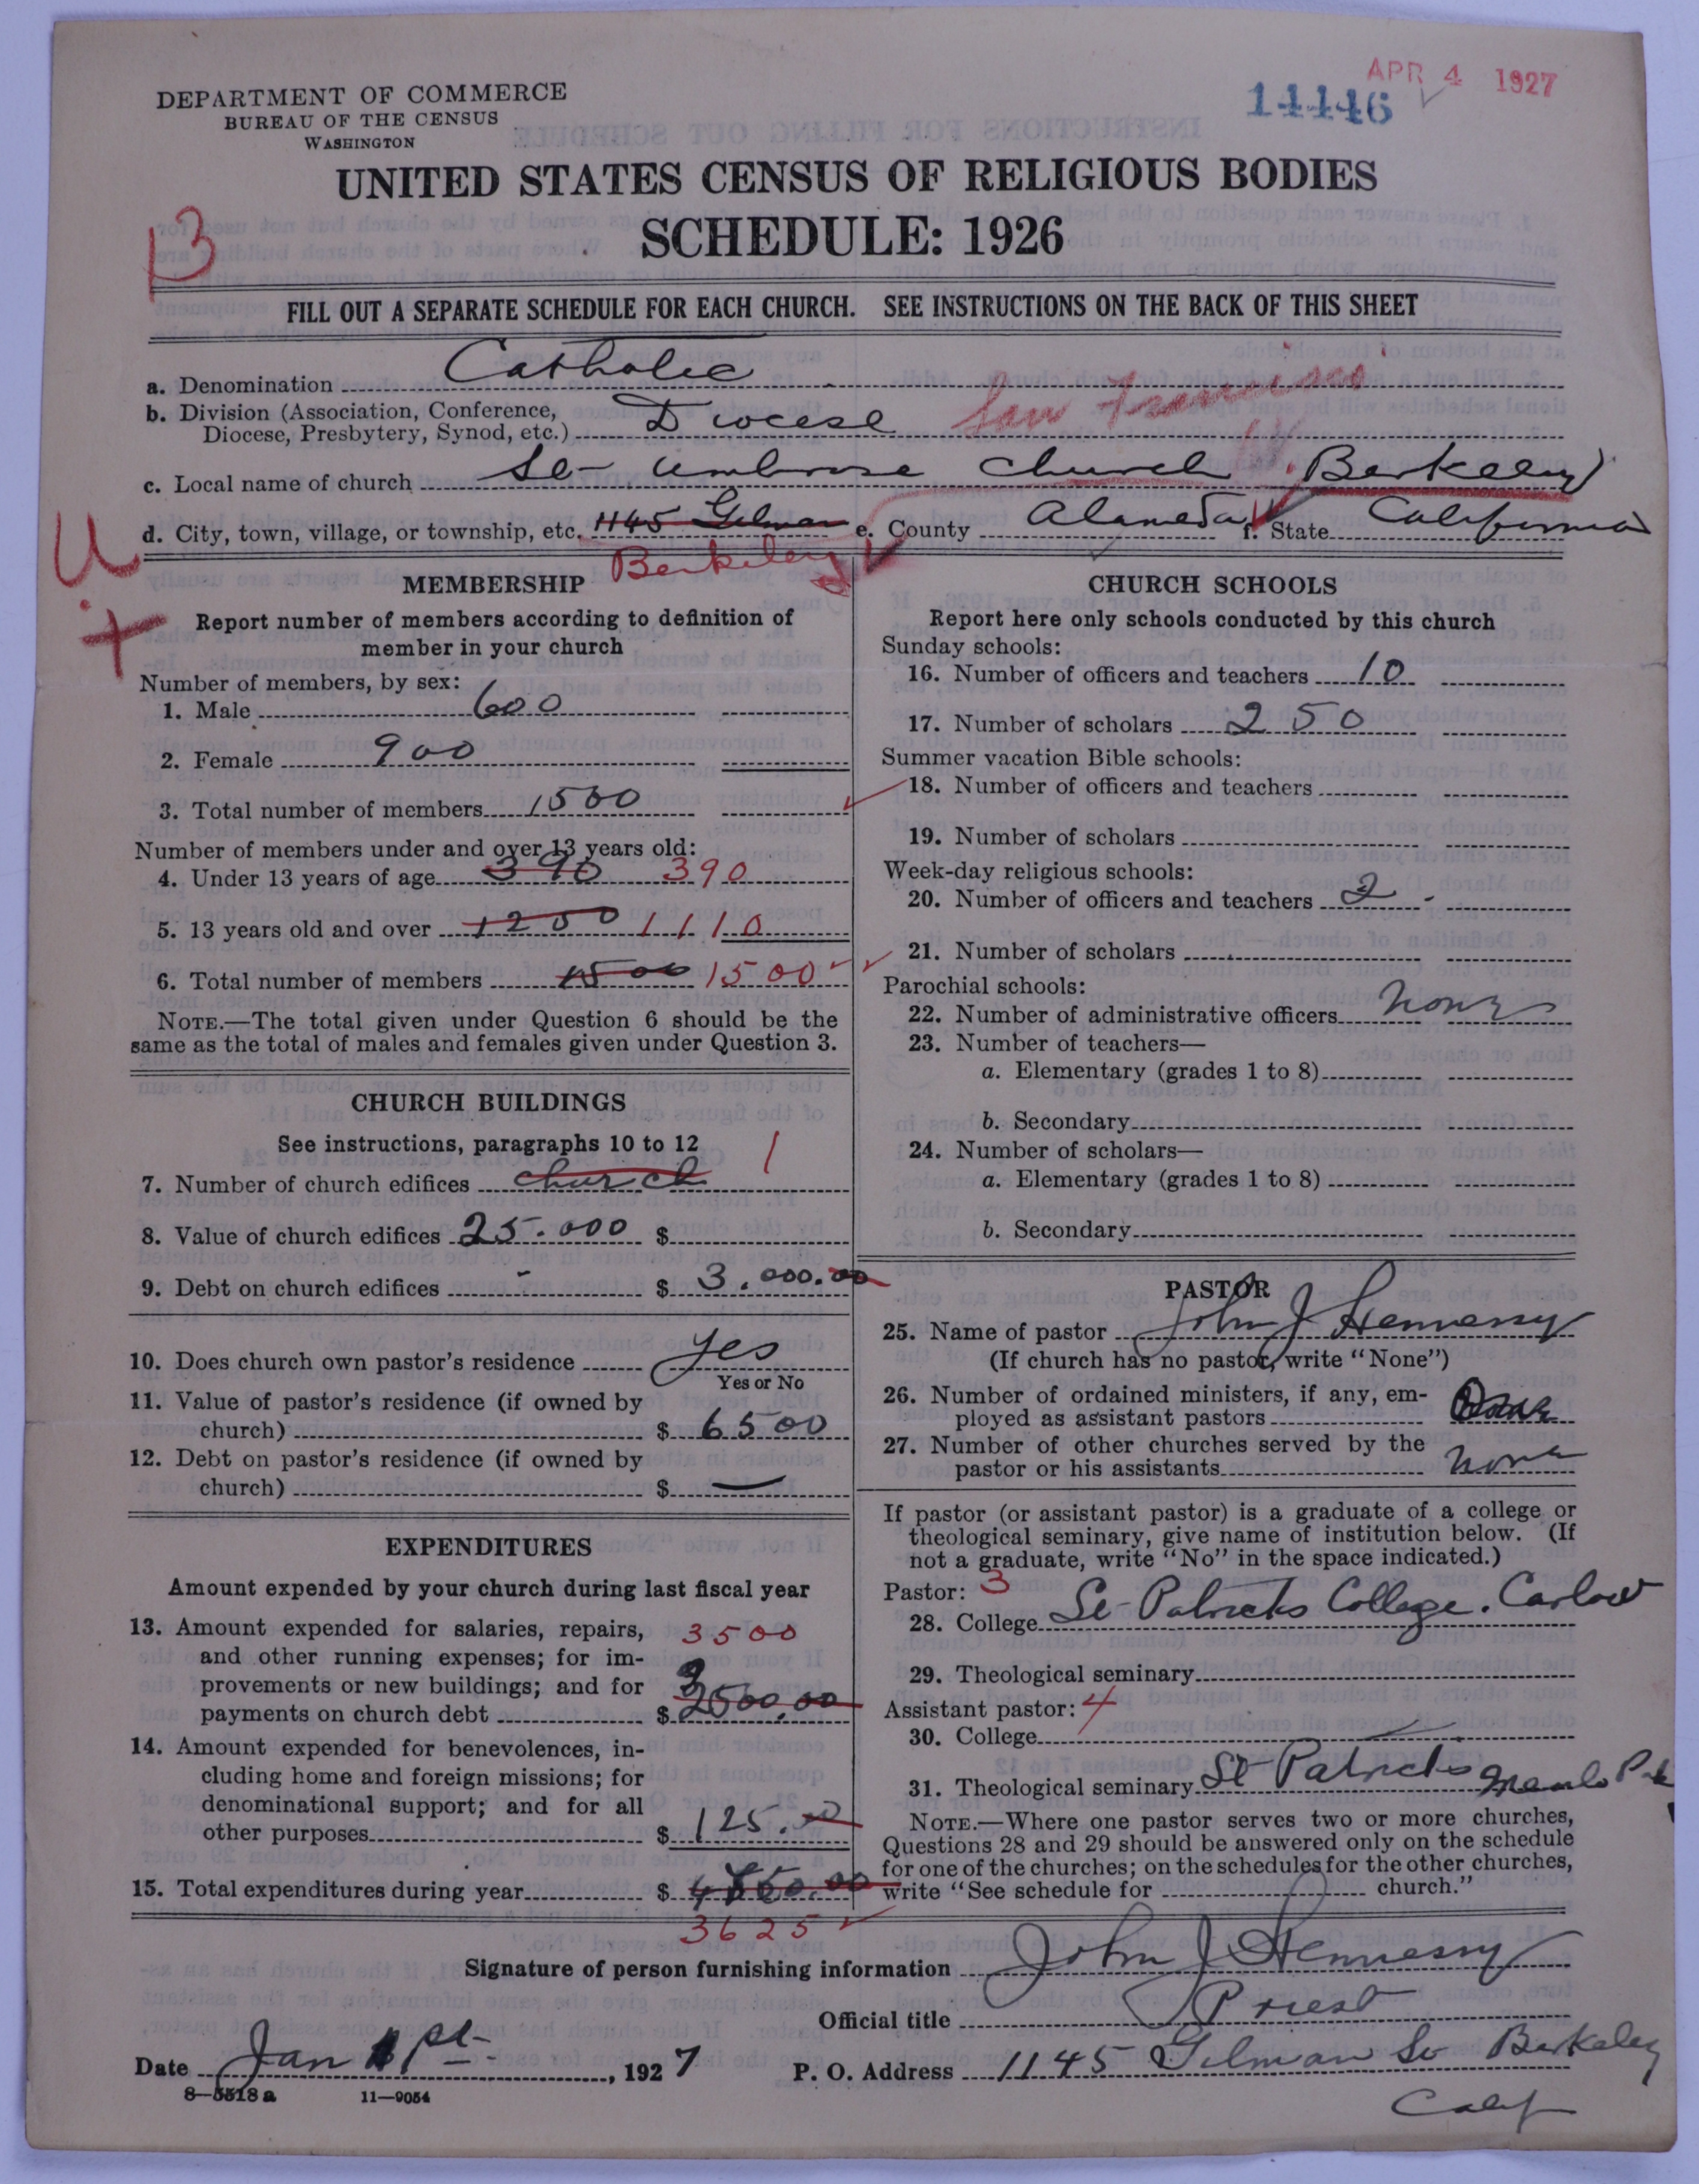 DEPARTMENT OF COMMERCE
BUREAU OF THE CENSUS
WASHINGTON
14446
APR 4 1927
UNITED STATES CENSUS OF RELIGIOUS BODIES
SCHEDULE: 1926
B
FILL OUT A SEPARATE SCHEDULE FOR EACH CHURCH. SEE INSTRUCTIONS ON THE BACK OF THIS SHEET
a. Denomination Catholic
b. Division (Association, Conference, Diocese, Presbytery, Synod, etc.) Diocese San Francisco
c. Local name of church St Ambrose Church Berkeley
d. City, town, village, or township, etc. 1145 Gilman e. County Alameda f. State California
Berkeley
U
MEMBERSHIP
Report number of members according to definition of
member in your church
Number of members, by sex:
1. Male 600
2. Female 900
3. Total number of members 1500
Number of members under and over 13 years old:
4. Under 13 years of age 390 390
5. 13 years old and over 1250 1110
6. Total number of members 1500 1500
NOTE.—The total given under Question 6 should be the
same as the total of males and females given under Question 3.
CHURCH BUILDINGS
See instructions, paragraphs 10 to 12
7. Number of church edifices church 1
8. Value of church edifices 25.000 $
9. Debt on church edifices - $ 3.000.00
10. Does church own pastor's residence Yes
Yes or No
11. Value of pastor's residence (if owned by
church) $ 6500
12. Debt on pastor's residence (if owned by
church) $ —
EXPENDITURES
Amount expended by your church during last fiscal year
13. Amount expended for salaries, repairs, 3500
and other running expenses; for im-
provements or new buildings; and for
payments on church debt $ 3500.00
14. Amount expended for benevolences, in-
cluding home and foreign missions; for
denominational support; and for all
other purposes $ 125.00
15. Total expenditures during year $
3625
CHURCH SCHOOLS
Report here only schools conducted by this church
Sunday schools:
16. Number of officers and teachers 10
17. Number of scholars 250
Summer vacation Bible schools:
18. Number of officers and teachers
19. Number of scholars
Week-day religious schools:
20. Number of officers and teachers 2
21. Number of scholars
Parochial schools:
22. Number of administrative officers none
23. Number of teachers—
a. Elementary (grades 1 to 8)
b. Secondary
24. Number of scholars—
a. Elementary (grades 1 to 8)
b. Secondary
PASTOR
25. Name of pastor John J Hennessy
(If church has no pastor, write "None")
26. Number of ordained ministers, if any, em-
ployed as assistant pastors One
27. Number of other churches served by the
pastor or his assistants none
If pastor (or assistant pastor) is a graduate of a college or
theological seminary, give name of institution below. (If
not a graduate, write "No" in the space indicated.)
Pastor: 3
28. College St Patricks College. Carlow
29. Theological seminary
Assistant pastor: 4
30. College
31. Theological seminary St Patricks Menlo Park
NOTE.—Where one pastor serves two or more churches,
Questions 28 and 29 should be answered only on the schedule
for one of the churches; on the schedules for the other churches,
write "See schedule for church."
Signature of person furnishing information John J Hennessy
Official title Priest
Date Jan 1st, 1927 P. O. Address 1145 Gilman St Berkeley
Calif
8—5518 a 11—9054